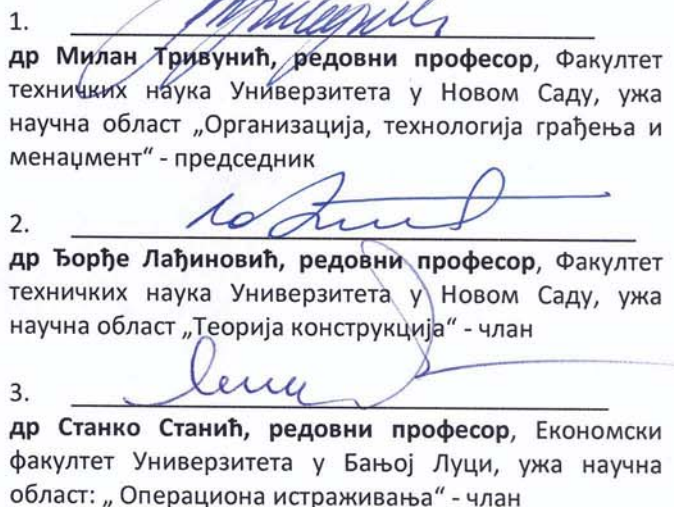 1.
др Милан Тривунић, редовни професор, Факултет
техничких наука Универзитета у Новом Саду, ужа
научна област „Организација, технологија грађења и
менаџмент“ - председник
2.
др Ђорђе Лађиновић, редовни професор, Факултет
техничких наука Универзитета у Новом Саду, ужа
научна област „Теорија конструкција“ - члан
3.
др Станко Станић, редовни професор, Економски
факултет Универзитета у Бањој Луци, ужа научна
област: „ Операциона истраживања“ - члан